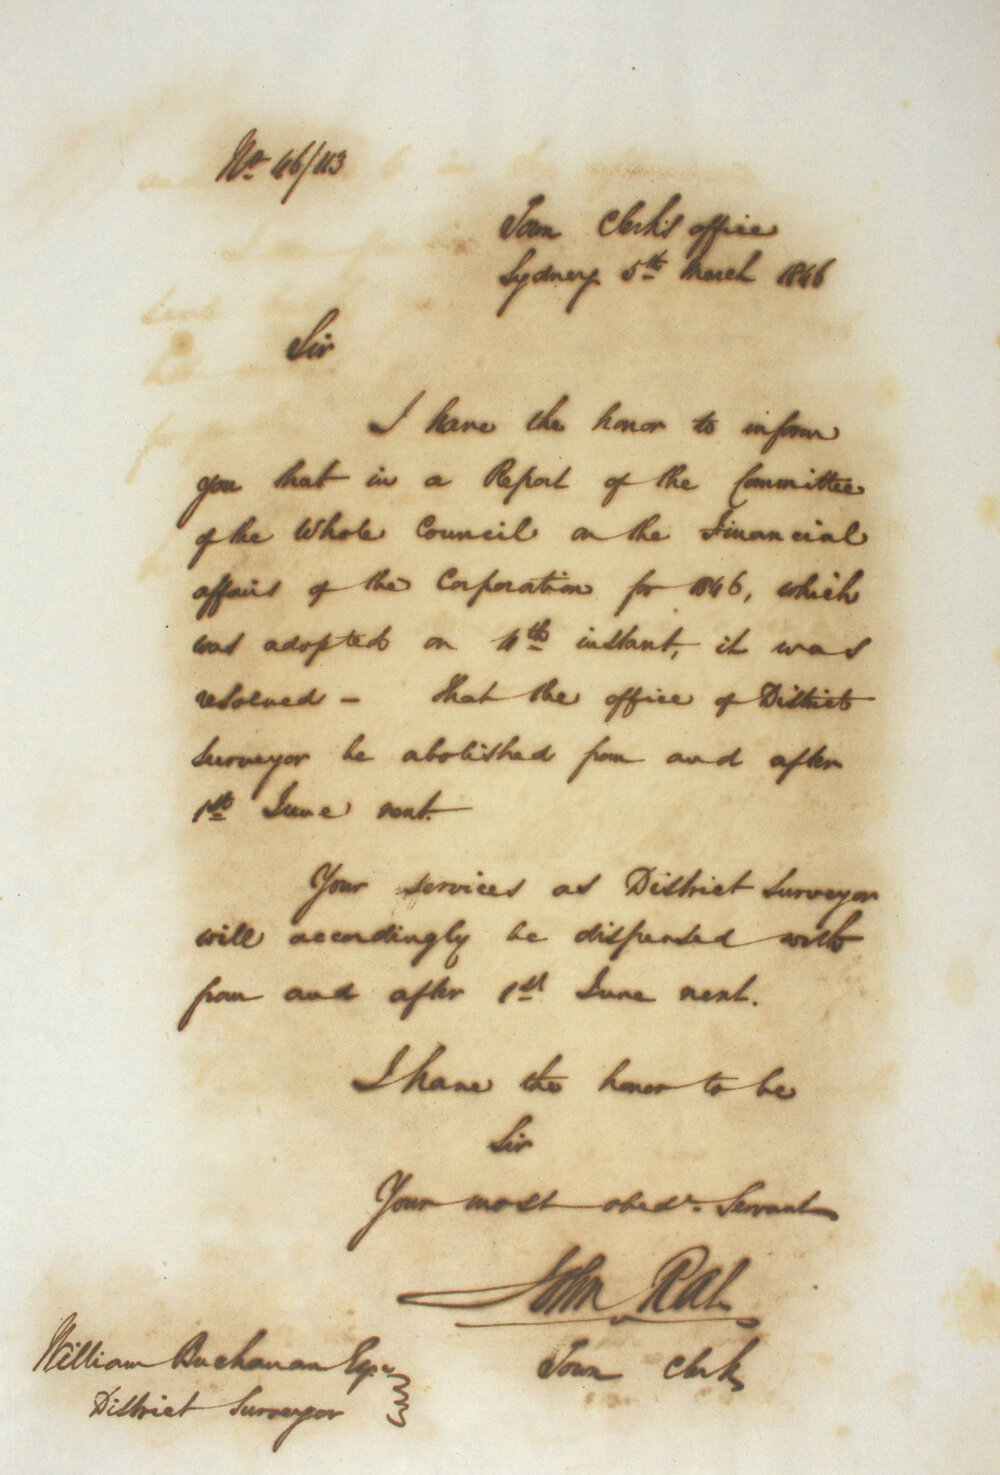 No 46/113
Town Clerk's office
Sydney 5th March 1846
Sir
I have the honor to inform
you that in a Report of the Committee
of the Whole Council on the Financial
affairs of the Corporation for 1846, which
was adopted on 4th instant, it was
resolved - that the office of District
Surveyor be abolished from and after
1st June next.
Your services as District Surveyor
will accordingly be dispensed with
from and after 1st June next.
I have the honor to be
Sir
Your most obedt. Servant
John
Town Clerk
William Buchanan Esqr
District Surveyor